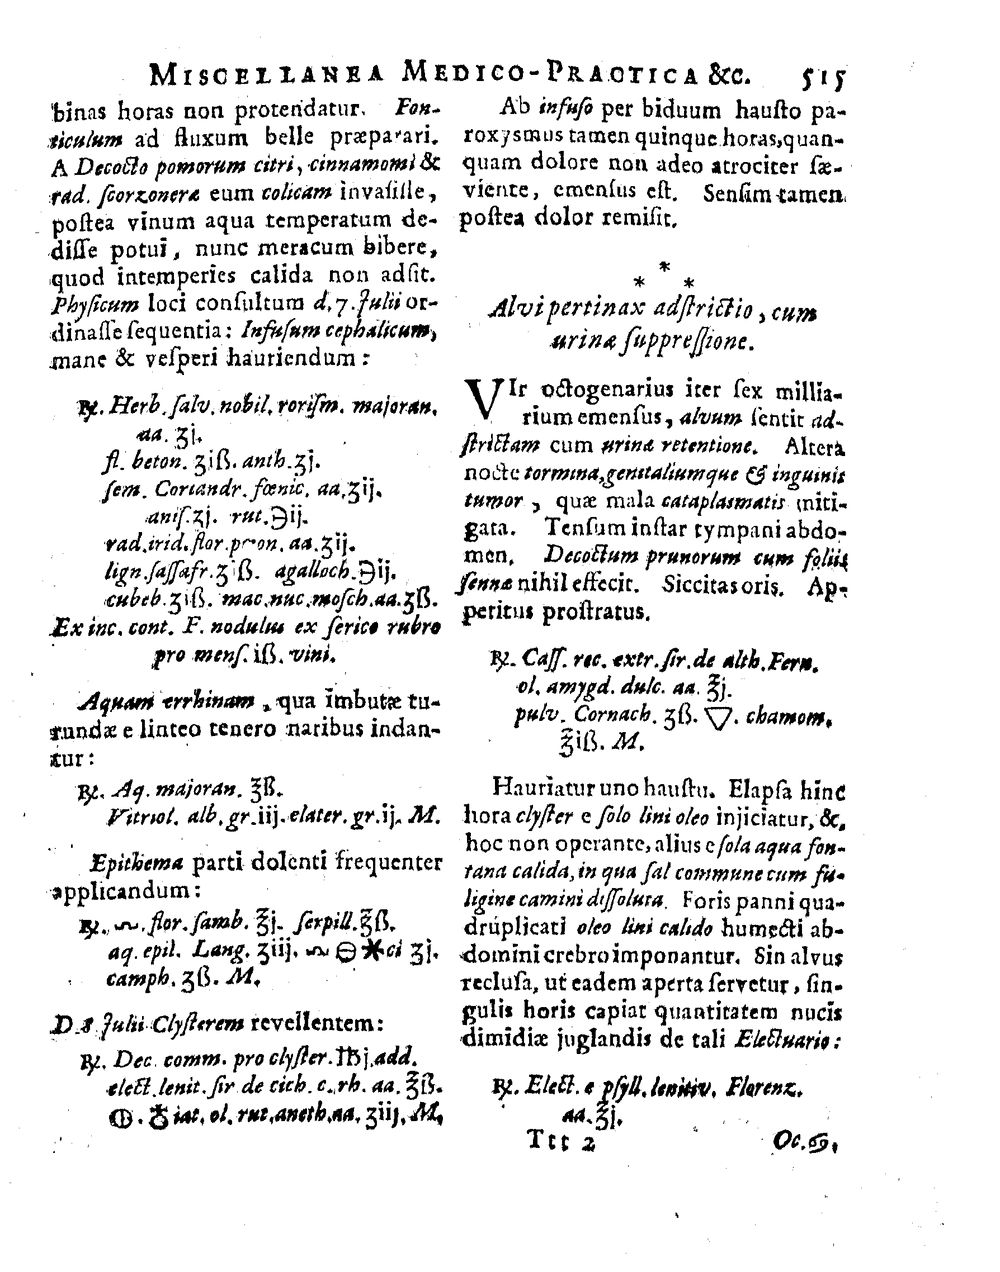 MISCELLANEA MEDICO-PRACTICA &c. 515
binas horas non protendatur. Fon-
ticulum ad fluxum belle præparari.
A Decocto pomorum citri, cinnamomi &
rad. ſcorzoneræ eum colicam invaſiſſe,
poſtea vinum aqua temperatum de-
diſſe potui, nunc meracum bibere,
quod intemperies calida non adſit.
Phyſicum loci conſultum d. 7. Julii or-
dinaſſe ſequentia: Infuſum cephalicum,
mane & veſperi hauriendum:
℞. Herb. ſalv. nobil. roriſm. majoran.
aa. ʒj.
fl. beton. ʒiß. anth. ʒj.
ſem. Coriandr. fœnic. aa. ʒij.
aniſ. ʒj. rut. ℈ij.
rad. irid. flor. pæon. aa. ʒij.
lign. ſaſſafr. ʒiß. agalloch. ℈ij.
cubeb. ʒiß. mac. nuc. moſch. aa. ʒß.
Ex inc. cont. F. nodulus ex ſerico rubro
pro menſ. iß. vini.
Aquam errhinam, qua imbutæ tu-
rundæ e linteo tenero naribus indan-
tur:
℞. Aq. majoran. ℥ß.
Vitriol. alb. gr. iij. elater. gr. ij. M.
Epithema parti dolenti frequenter
applicandum:
℞. ᔓ. flor. ſamb. ℥j. ſerpill. ℥ß.
aq. epil. Lang. ʒiij. ᔓ ⊖ ✱ci ʒj.
camph. ʒß. M.
D. 8. Julii Clyſterem revellentem:
℞. Dec. comm. pro clyſter. ℔j. add.
elect. lenit. ſir de cich. c. rh. aa. ℥ß.
🜨iat. ol. rut. aneth. aa. ʒiij. M.
Ab infuſo per biduum hauſto pa-
roxysmus tamen quinque horas, quan-
quam dolore non adeo atrociter ſæ-
viente, emenſus eſt. Senſim tamen
poſtea dolor remiſit.
*
* *
Alvi pertinax adſtrictio, cum
urinæ ſuppreſſione.
VIr octogenarius iter ſex millia-
rium emenſus, alvum ſentit ad-
ſtrictam cum urinæ retentione. Altera
nocte tormina, genitaliumque & inguinis
tumor, quæ mala cataplasmatis miti-
gata. Tenſum inſtar tympani abdo-
men. Decoctum prunorum cum foliis
ſennæ nihil effecit. Siccitas oris. Ap-
petitus proſtratus.
℞. Caſſ. rec. extr. ſir. de alth. Fern.
ol. amygd. dulc. aa. ℥j.
pulv. Cornach. ʒß. ▽. chamom.
℥iß. M.
Hauriatur uno hauſtu. Elapſa hinc
hora clyſter e ſolo lini oleo injiciatur, &,
hoc non operante, alius e ſola aqua fon-
tana calida, in qua ſal commune cum fu-
ligine camini diſſoluta. Foris panni qua-
druplicati oleo lini calido humecti ab-
domini crebro imponantur. Sin alvus
recluſa, ut eadem aperta ſervetur, ſin-
gulis horis capiat quantitatem nucis
dimidiæ juglandis de tali Electuario:
℞. Elect. e pſyll. lenitiv. Florenz.
aa. ℥j.
Ttt 2 Oc. ♋,